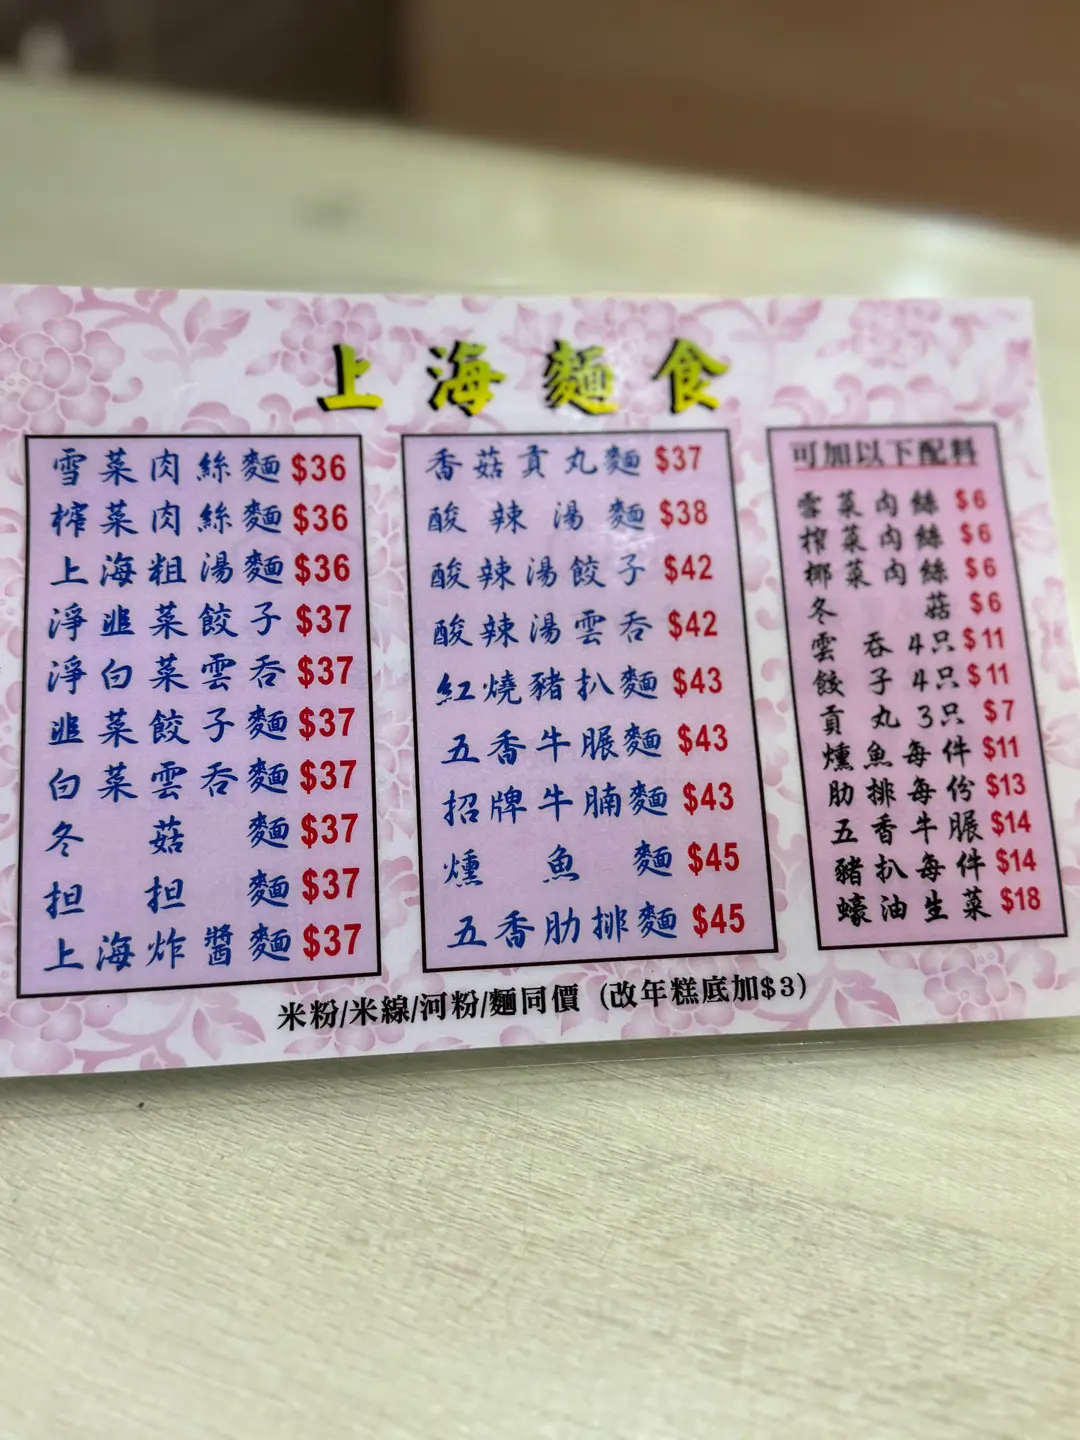 上海麵食
雪菜肉絲麵 $36
榨菜肉絲麵 $36
上海粗湯麵 $36
淨韭菜餃子 $37
淨白菜雲吞 $37
韭菜餃子麵 $37
白菜雲吞麵 $37
冬菇麵 $37
担担麵 $37
上海炸醬麵 $37
香菇貢丸麵 $37
酸辣湯麵 $38
酸辣湯餃子 $42
酸辣湯雲吞 $42
紅燒豬扒麵 $43
五香牛脤麵 $43
招牌牛腩麵 $43
燻魚麵 $45
五香肋排麵 $45
可加以下配料
雪菜肉絲 $6
榨菜肉絲 $6
椰菜肉絲 $6
冬菇 $6
雲吞4只 $11
餃子4只 $11
貢丸3只 $7
燻魚每件 $11
肋排每份 $13
五香牛脤 $14
豬扒每件 $14
蠔油生菜 $18
米粉/米線/河粉/麵同價 (改年糕底加$3)